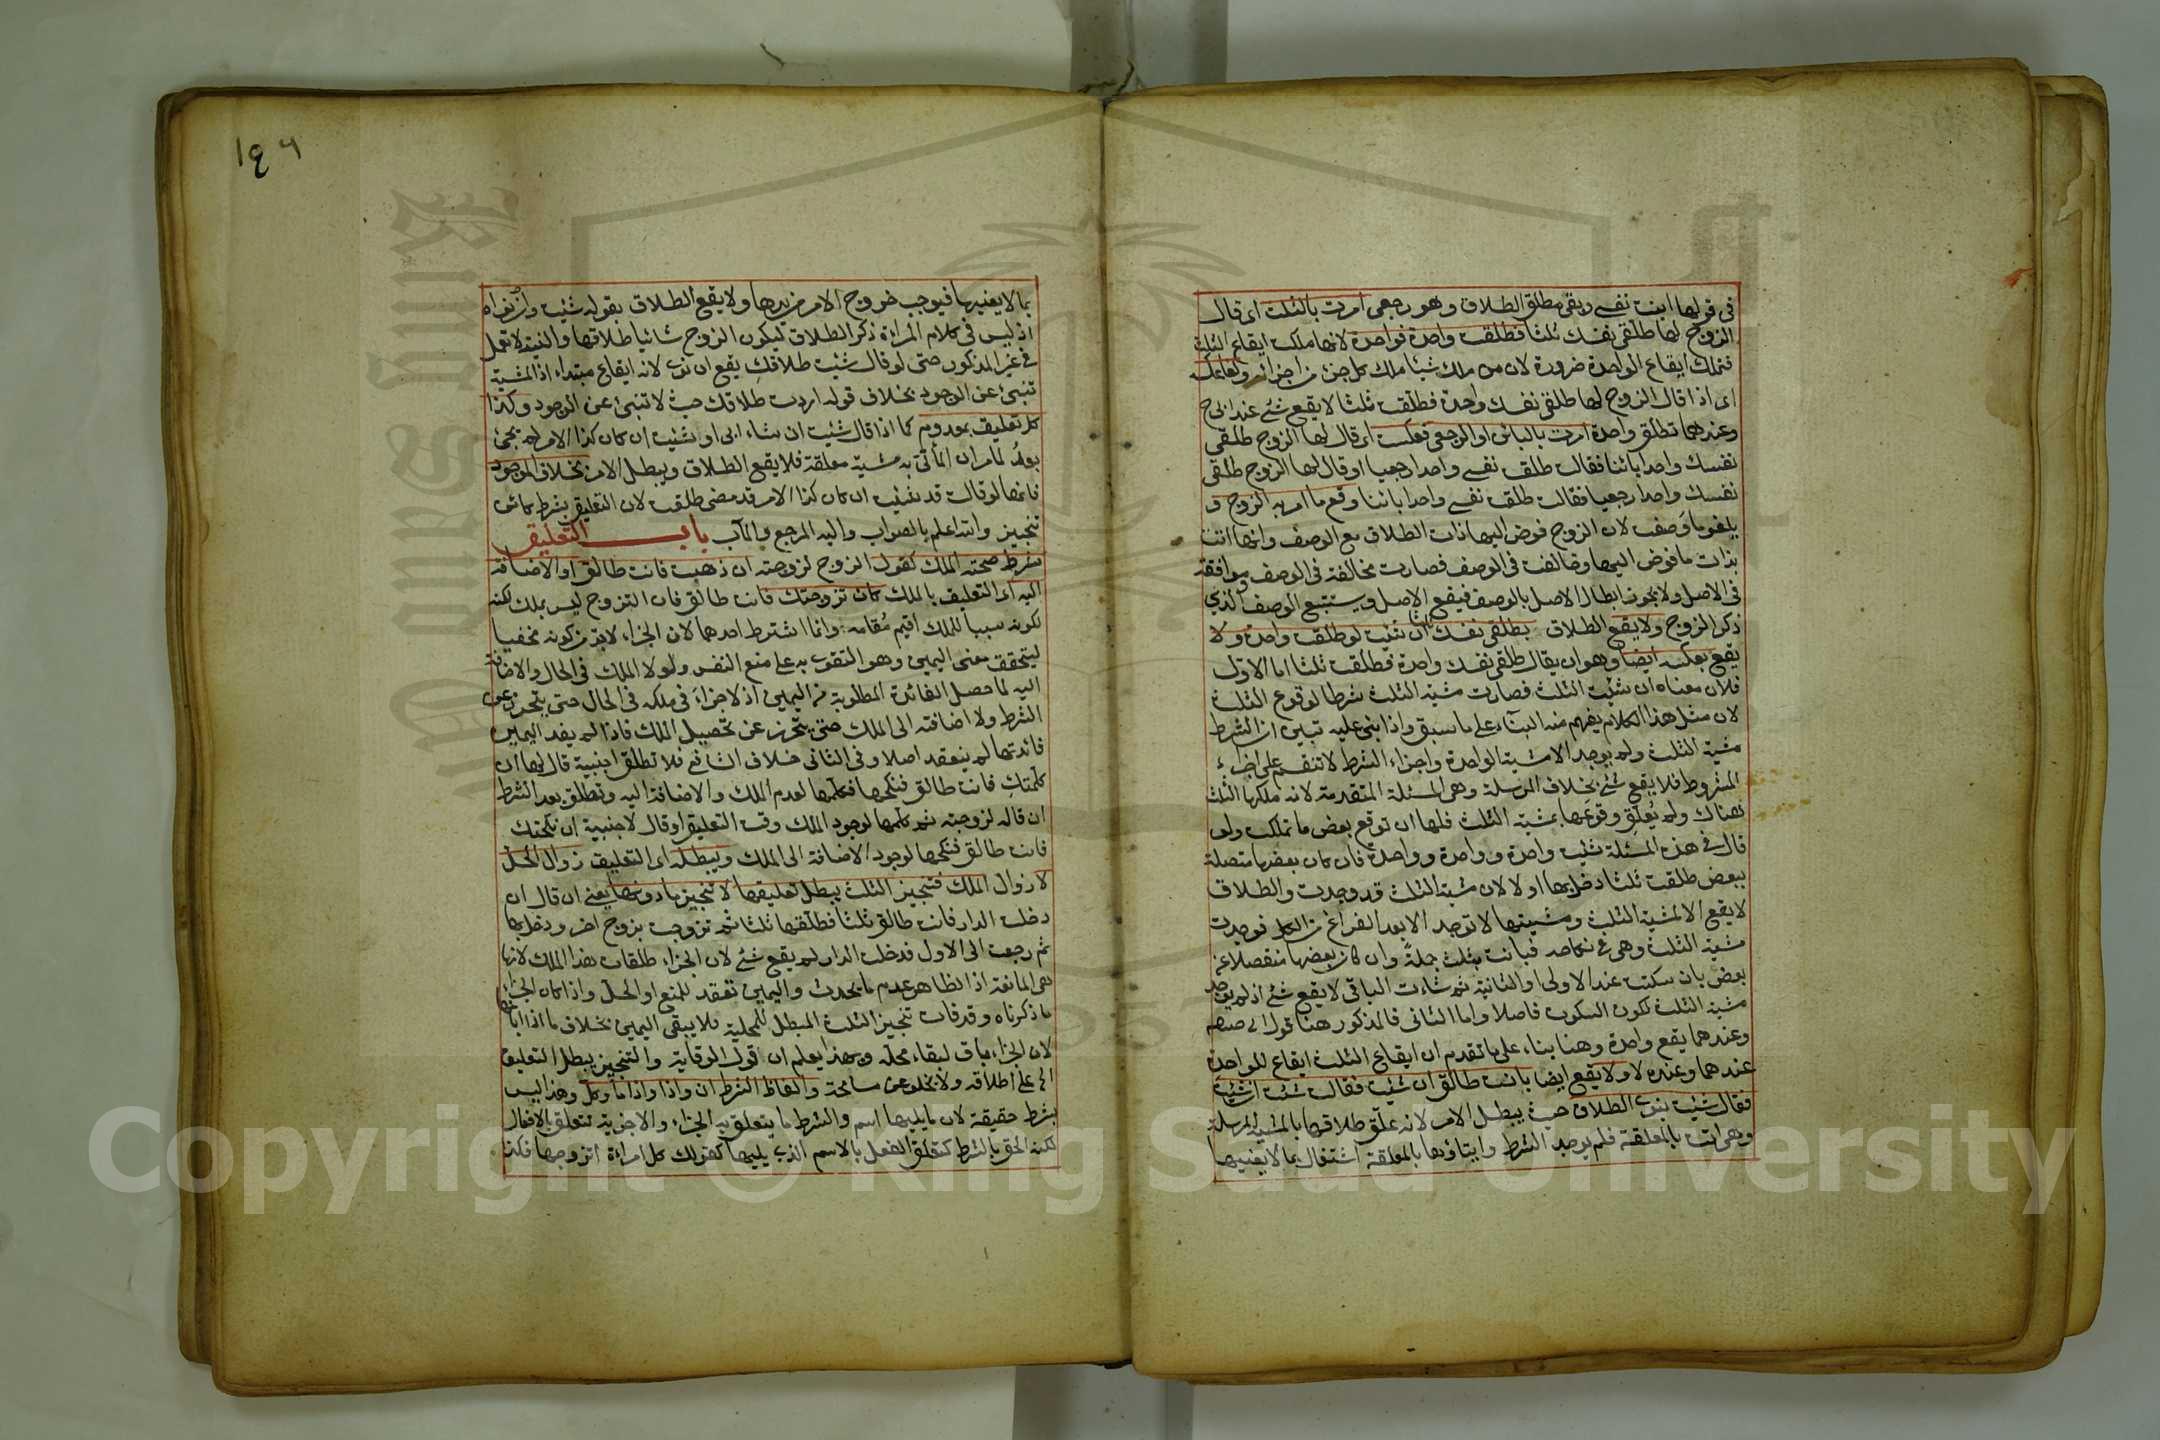 في قولها ابنت نفسي وبقي مطلق الطلاق وهو رجعي امرت بالثلث اي قال
الزوج لها طلقي نفسك ثلثا فطلقت واحدة فواحدة لانها ملكت ايقاع الثلث
فتملك ايقاع الواحدة ضرورة لان من ملك شيئا ملك كل جزء من اجزائه ولغا بعكسه
اي اذا قال الزوج لها طلقي نفسك واحدة فطلقت ثلثا لا يقع شئ عند ابي ح
وعندهما تطلق واحدة امرت بالبائن او الرجعي فعكست اي قال لها الزوج طلقي
نفسك واحدا بائنا فقالت طلقت نفسي واحدا رجعيا او قال لها الزوج طلقي
نفسك واحدا رجعيا فقالت طلقت نفسي واحدا بائنا وقع ما امر به الزوج و
يلغو ما وصفت لان الزوج فوض اليها ذات الطلاق مع الوصف وانها اتت
بذات ما فوض اليها وخالفت في الوصف فصارت مخالفة في الوصف وموافقة
في الاصل ولا يجوز ابطال الاصل بالوصف فيقع الاصل ويستتبع الوصف الذي
ذكر الزوج ولا يقع الطلاق بطلقي نفسك ثلثا ان شئت لو طلقت واحدة ولا
يقع بعكسه ايضا وهو ان يقال طلقي نفسك واحدة فطلقت ثلثا اما الاول
فلان معناه ان شئت الثلث فصارت مشية الثلث شرطا لوقوع الثلث
لان مثل هذا الكلام يفهم منه البناء على ما سبق واذا بني عليه تبين ان الشرط
مشية الثلث ولم يوجد الا مشية الواحدة واجزاء الشرط لا تنقسم على اجزاء
المشروط فلا يقع شئ بخلاف المرسلة وهي المسئلة المتقدمة لانه ملكها الثلث
هناك ولم يعلق وقوعها بمشية الثلث فلها ان توقع بعض ما تملكت ولو
قال في هذه المسئلة شئت واحدة وواحدة وواحدة فان كان بعضها متصلة
ببعض طلقت ثلثا دخل بها او لا لان مشية الثلث قد وجدت والطلاق
لا يقع الا لمشية الثلث ومشيتها لا توجد الا بعد الفراغ من الكل فوجدت
مشية الثلث وهي في نكاحه فبانت بثلث جملة وان كان بعضها منفصلا عن
بعض بان سكتت عند الاولى او الثانية ثم شاءت الباقي لا يقع شئ اذ لم يوجد
مشية الثلث لكون السكوت فاصلا واما الثاني فالمذكور هنا قول ابي حنيفة
وعندهما يقع واحدة وهنا بناء على ما تقدم ان ايقاع الثلث ايقاع للواحدة
عندهما وعنده لا ولا يقع ايضا بانت طالق ان شئت فقالت شئت ان شئت
فقال شئت ينوي الطلاق حيث يبطل الامر لانه علق طلاقها بالمشية المرسلة
وهي اتت بالمعلقة فلم يوجد الشرط وايتاؤها بالمعلقة اشتغال بما لا يعنيها
١٤٦
بما لا يعنيها فيوجب خروج الامر من يدها ولا يقع الطلاق بقوله شئت وان نواه
اذ ليس في كلام المرءة ذكر الطلاق ليكون الزوج شائيا طلاقها والنية لا تعمل
في غير المذكور حتى لو قال شئت طلاقك يقع ان نوى لانه ايقاع مبتداء اذ المشية
تنبئ عن الوجود بخلاف قوله اردت طلاقك حيث لا تنبئ عن الوجود وكذا
كل تعليق بمعدوم كما اذا قال شئت ان شاء ابي او شئت ان كان كذا الامر لم يجئ
بعد لما مر ان المأتي به مشية معلقة فلا يقع الطلاق ويبطل الامر بخلاف الموجود
فانها لو قالت قد شئت ان كان كذا الامر قد مضى طلقت لان التعليق بشرط كائن
تنجيز والله اعلم بالصواب واليه المرجع والمآب باب التعليق
شرط صحته الملك كقول الزوج لزوجته ان ذهبت فانت طالق او الاضافة
اليه اي التعليق بالملك كان تزوجتك فانت طالق فان التزوج ليس بملك لكنه
لكونه سببا للملك اقيم مقامه وانما اشترط احدهما لان الجزاء لا بد من كونه مخفيا
ليتحقق معنى اليمين وهو التقوي به على منع النفس ولولا الملك في الحال والاضافة
اليه لما حصل الفائدة المطلوبة من اليمين اذ لا جزاء في ملكه في الحال حتى يتحرز عن
الشرط ولا اضافته الى الملك حتى يتحرز عن تحصيل الملك فاذا لم يفد اليمين
فائدتها لم ينعقد اصلا وفي الثاني خلاف الشافعي فلا تطلق اجنبية قال لها ان
كلمتك فانت طالق فنكحها فكلمها لعدم الملك والاضافة اليه وتطلق بعد الشرط
ان قاله لزوجته ثم كلمها لوجود الملك وقت التعليق او قال لاجنبية ان نكحتك
فانت طالق فنكحها لوجود الاضافة الى الملك ويبطله اي التعليق زوال الحل
لا زوال الملك فتنجيز الثلث يبطل تعليقها لا تنجيز ما دونها يعني ان قال ان
دخلت الدار فانت طالق ثلثا فطلقها ثلثا ثم تزوجت بزوج اخر ودخل بها
ثم رجعت الى الاول فدخلت الدار لم يقع شئ لان الجزاء طلقات هذا الملك لانها
هي المانعة اذ الظاهر عدم ما يحدث واليمين تعقد للمنع او الحل واذا كان الجزاء
ما ذكرناه وقد فات تنجيز الثلث المبطل للمحلية فلا يبقى اليمين بخلاف ما اذا ابانها
لان الجزاء باق لبقاء محله وبهذا يعلم ان قول الوقاية والتنجيز يبطل التعليق
الى على اطلاقه ولا يخلو عن مسامحة والفاظ الشرط ان واذا واذا ما وكل وهذا ليس
بشرط حقيقة لان ما يليها اسم والشرط ما يتعلق به الجزاء والاجزية تتعلق بالافعال
لكنه الحق بالشرط لتعلق الفعل بالاسم الذي يليها كقولك كل امراءة اتزوجها فكذا
Copyright © King Saud University